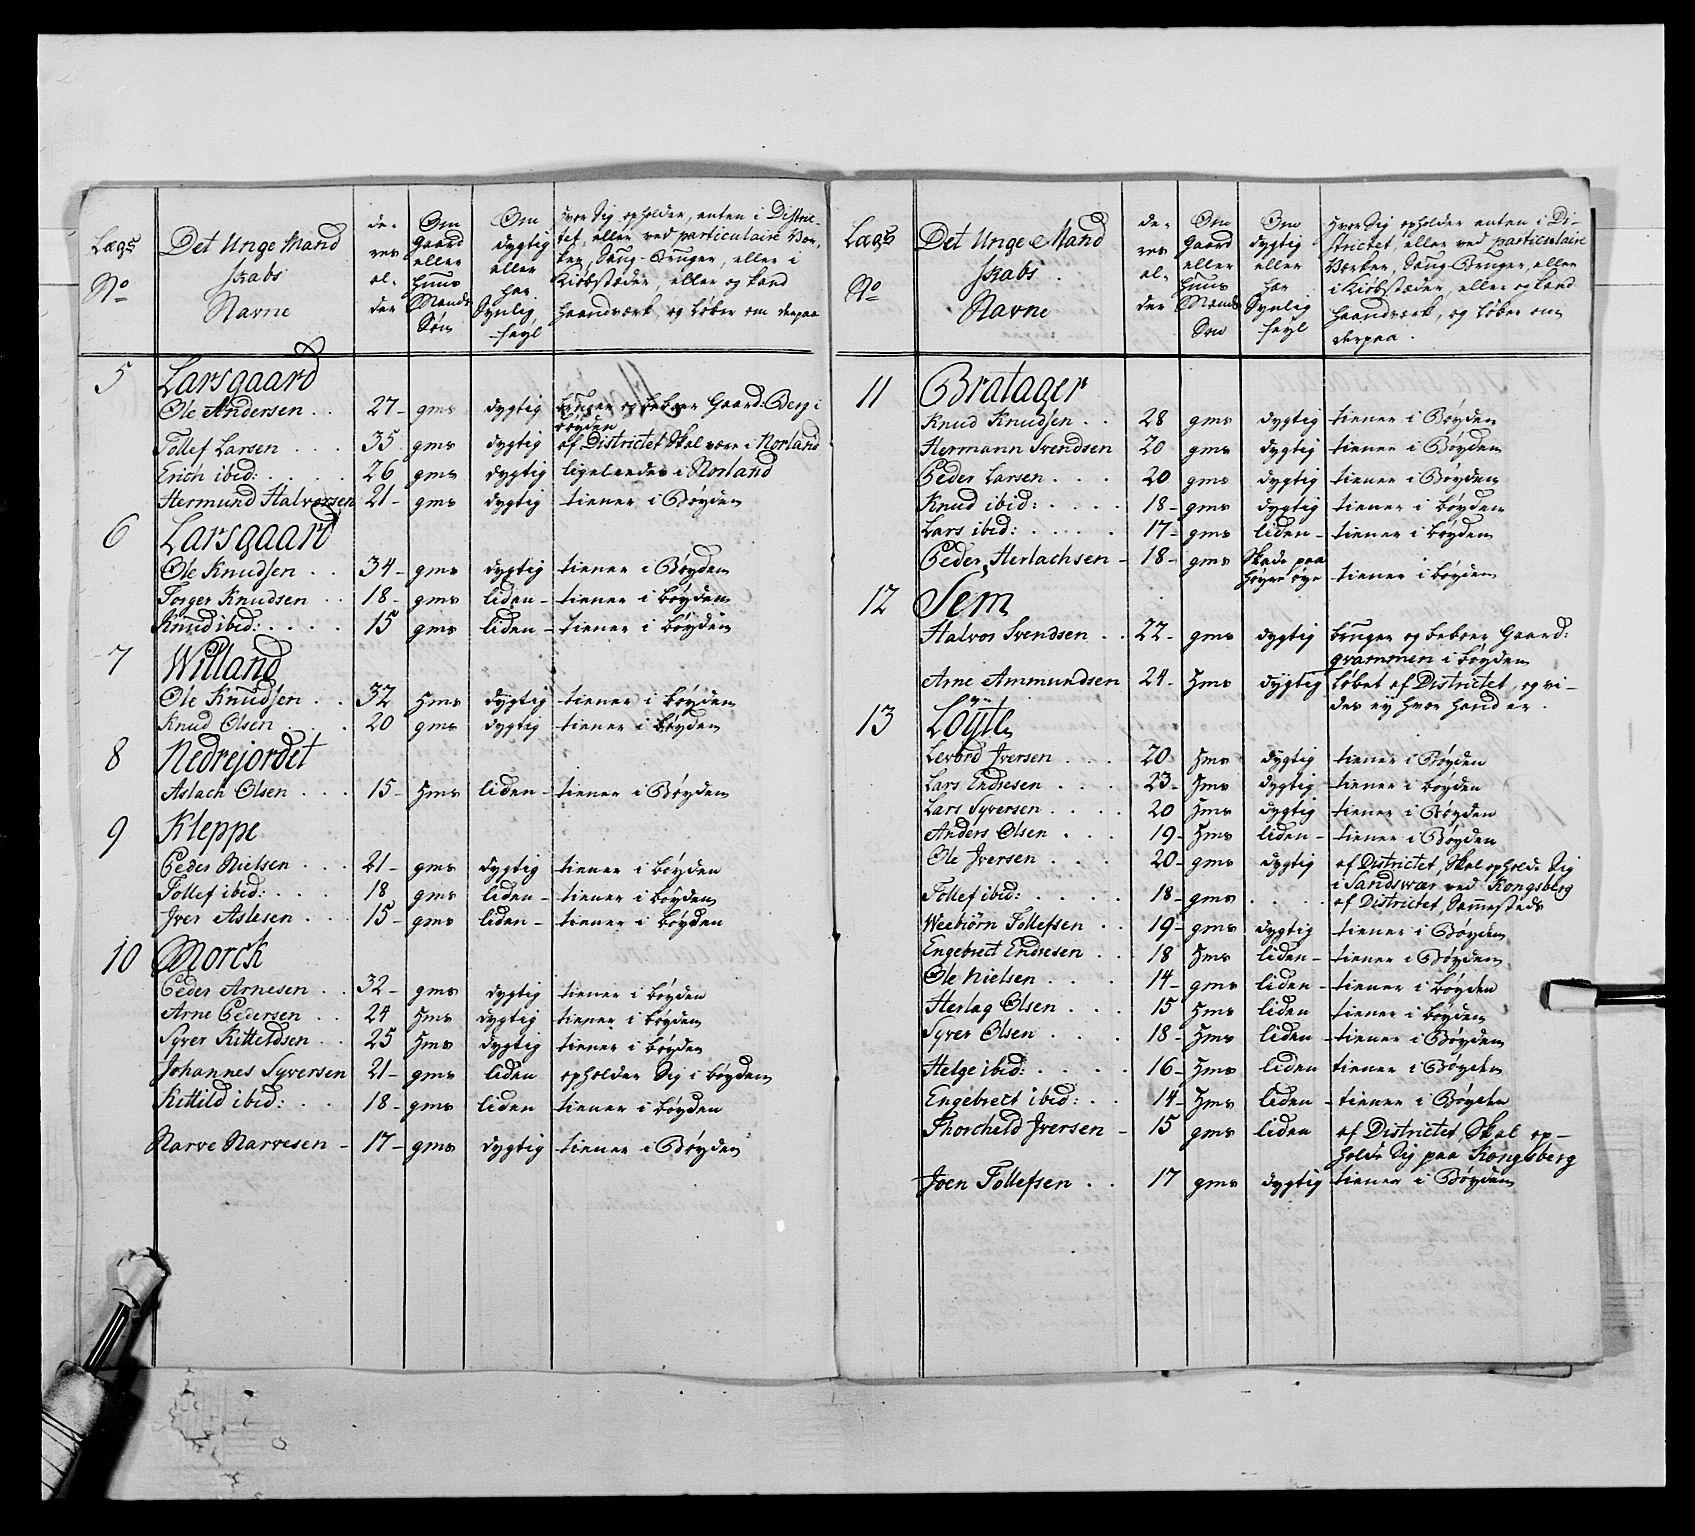 Lægs No
Det Unge Mand skabs Navne
deres alder
Om Gaard eller Huus Mands Søn
Om dygtig eller har Synlig feyl
Hvor Sig opholder, enten i Distric-
tet, eller ved particulaire Vær-
ker, Saug-Bruger, eller i
Kiøbstæder, eller og kand
Haandværk, og løber om derpaa
5 Larsgaard
Ole Andersen . . 27- gms dygtig bruger og beboer Gaard: Berg i
bøyden
Tollef Larsen . . . 35 gms dygtig af Districtet Skal være i Norland
Erich ibid: . . . . 26 gms dygtig ligeleedes i Norland
Hermund Halvorsen 21- gms dygtig tiener i Bøyden
6 Larsgaard
Ole Knudsen . . 34- gms dygtig tiener i Bøyden
Torger Knudsen . . 18- gms liden- tiener i bøyden
Knud ibid: . . . . 15 gms liden- tiener i bøyden
7 Willand
Ole Knudsen . . 32 Hms dygtig tiener i bøyden
Knud Olsen . . . 20 gms dygtig tiener i bøyden
8 Nedrejordet
Aslach Olsen . . . 15- Hms liden- tiener i Bøyden
9 Kleppe
Peder Nielsen . . . 21- gms dygtig tiener i bøyden
Tollef ibid: . . . . 18 gms liden- tiener i bøyden
Iver Aslesen . . . 15- gms liden- tiener i bøyden
10 Morck
Peder Arnesen . . 32- gms dygtig tiener i bøyden
Arne Pedersen . . 24 Hms dygtig tiener i bøyden
Syver Kittildsen . . 25 Hms dygtig tiener i bøyden
Johannes Syversen 21- gms liden opholder Sig i bøyden
Kittild ibid: . . 18- gms liden tiener i bøyden
Narve Narvesen - 17- gms dygtig tiener i Bøyden
Lægs No
Det Unge Mand skabs Navne
deres alder
Om Gaard eller Huus Mands Søn
Om dygtig eller har Synlig feyl
Hvor Sig opholder enten i Di-
strictet, eller ved particulaire
Værker, Saug-Bruger, eller
i Kiøbstæder, eller og kand
Haandværk, og løber om
derpaa.
11 Bratager
Knud Knudsen . . 28 gms dygtig tiener i Bøyden
Hermann Svendsen 20 gms dygtig tiener i Bøyden
Peder Larsen . . . 20 gms dygtig tiener i Bøyden
Knud ibid: . . . . 18- gms dygtig tiener i bøyden
Lars ibid: . . . . . 17- gms liden- tiener i bøyden
Peder Herlachsen - 18- gms Skade paa
høyre øye tiener i bøyden
12 Sem
Halvor Svendsen . . 22- gms dygtig bruger og beboer Gaard:
qvammen i bøyden
Arne Ammundsen 24- Hms dygtig løbet af Districtet, og vi-
des ey hvor hand er.
13 Løyte
Levord Iversen . . . 20 Hms dygtig tiener i Bøyden
Lars Endresen . . . 23- Hms dygtig tiener i bøyden
Lars Syversen . . . 20 Hms dygtig tiener i Bøyden
Anders Olsen . . . 19- Hms liden- tiener i Bøyden
Ole Iversen . . . 20- gms dygtig af Districtet, Skal opholde Sig
i Sandswær ved Kongsberg
Tollef ibid: . . . . . 18- gms . . . . af Districtet, Sammesteds
Weebiørn Tollefsen . . 19- gms dygtig tiener i Bøyden
Engebrect Endresen . . 18 Hms liden- tiener i Bøyden
Ole Nielsen . . . 14- gms liden- tiener i bøyden
Herlag Olsen . . . 15 Hms liden tiener i bøyden
Syver Olsen . . . 18- Hms liden- tiener i Bøyden
Helge ibid: . . . . 16- Hms liden tiener i Bøyden
Engebrect ibid: . . 14- Hms liden- tiener i Bøyden
Thorchild Iversen - 15 gms liden af Districtet, Skal op-
holde Sig paa Kongsberg
Joen Tollefsen . . 17 gms dygtig tiener i Bøyden